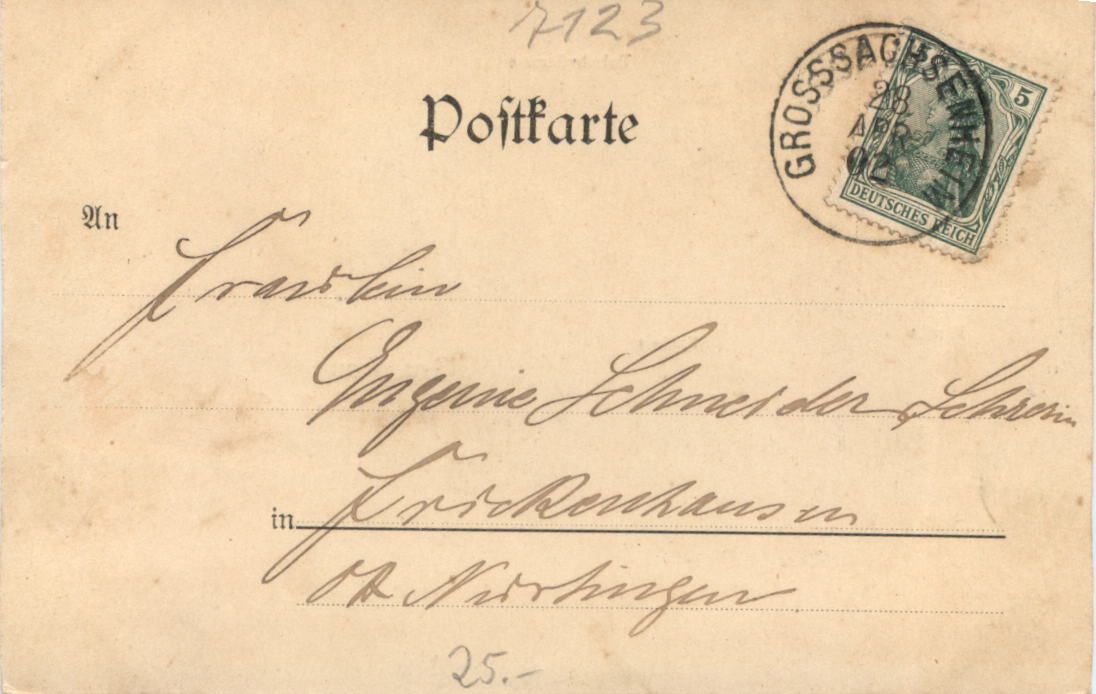 7123
Postkarte
GROSSSACHSENHEIM
28
APR
02
5
DEUTSCHES REICH
An
Fräulein
Eugenie Schneider
in Frickenhausen
OA Nürtingen
25.-